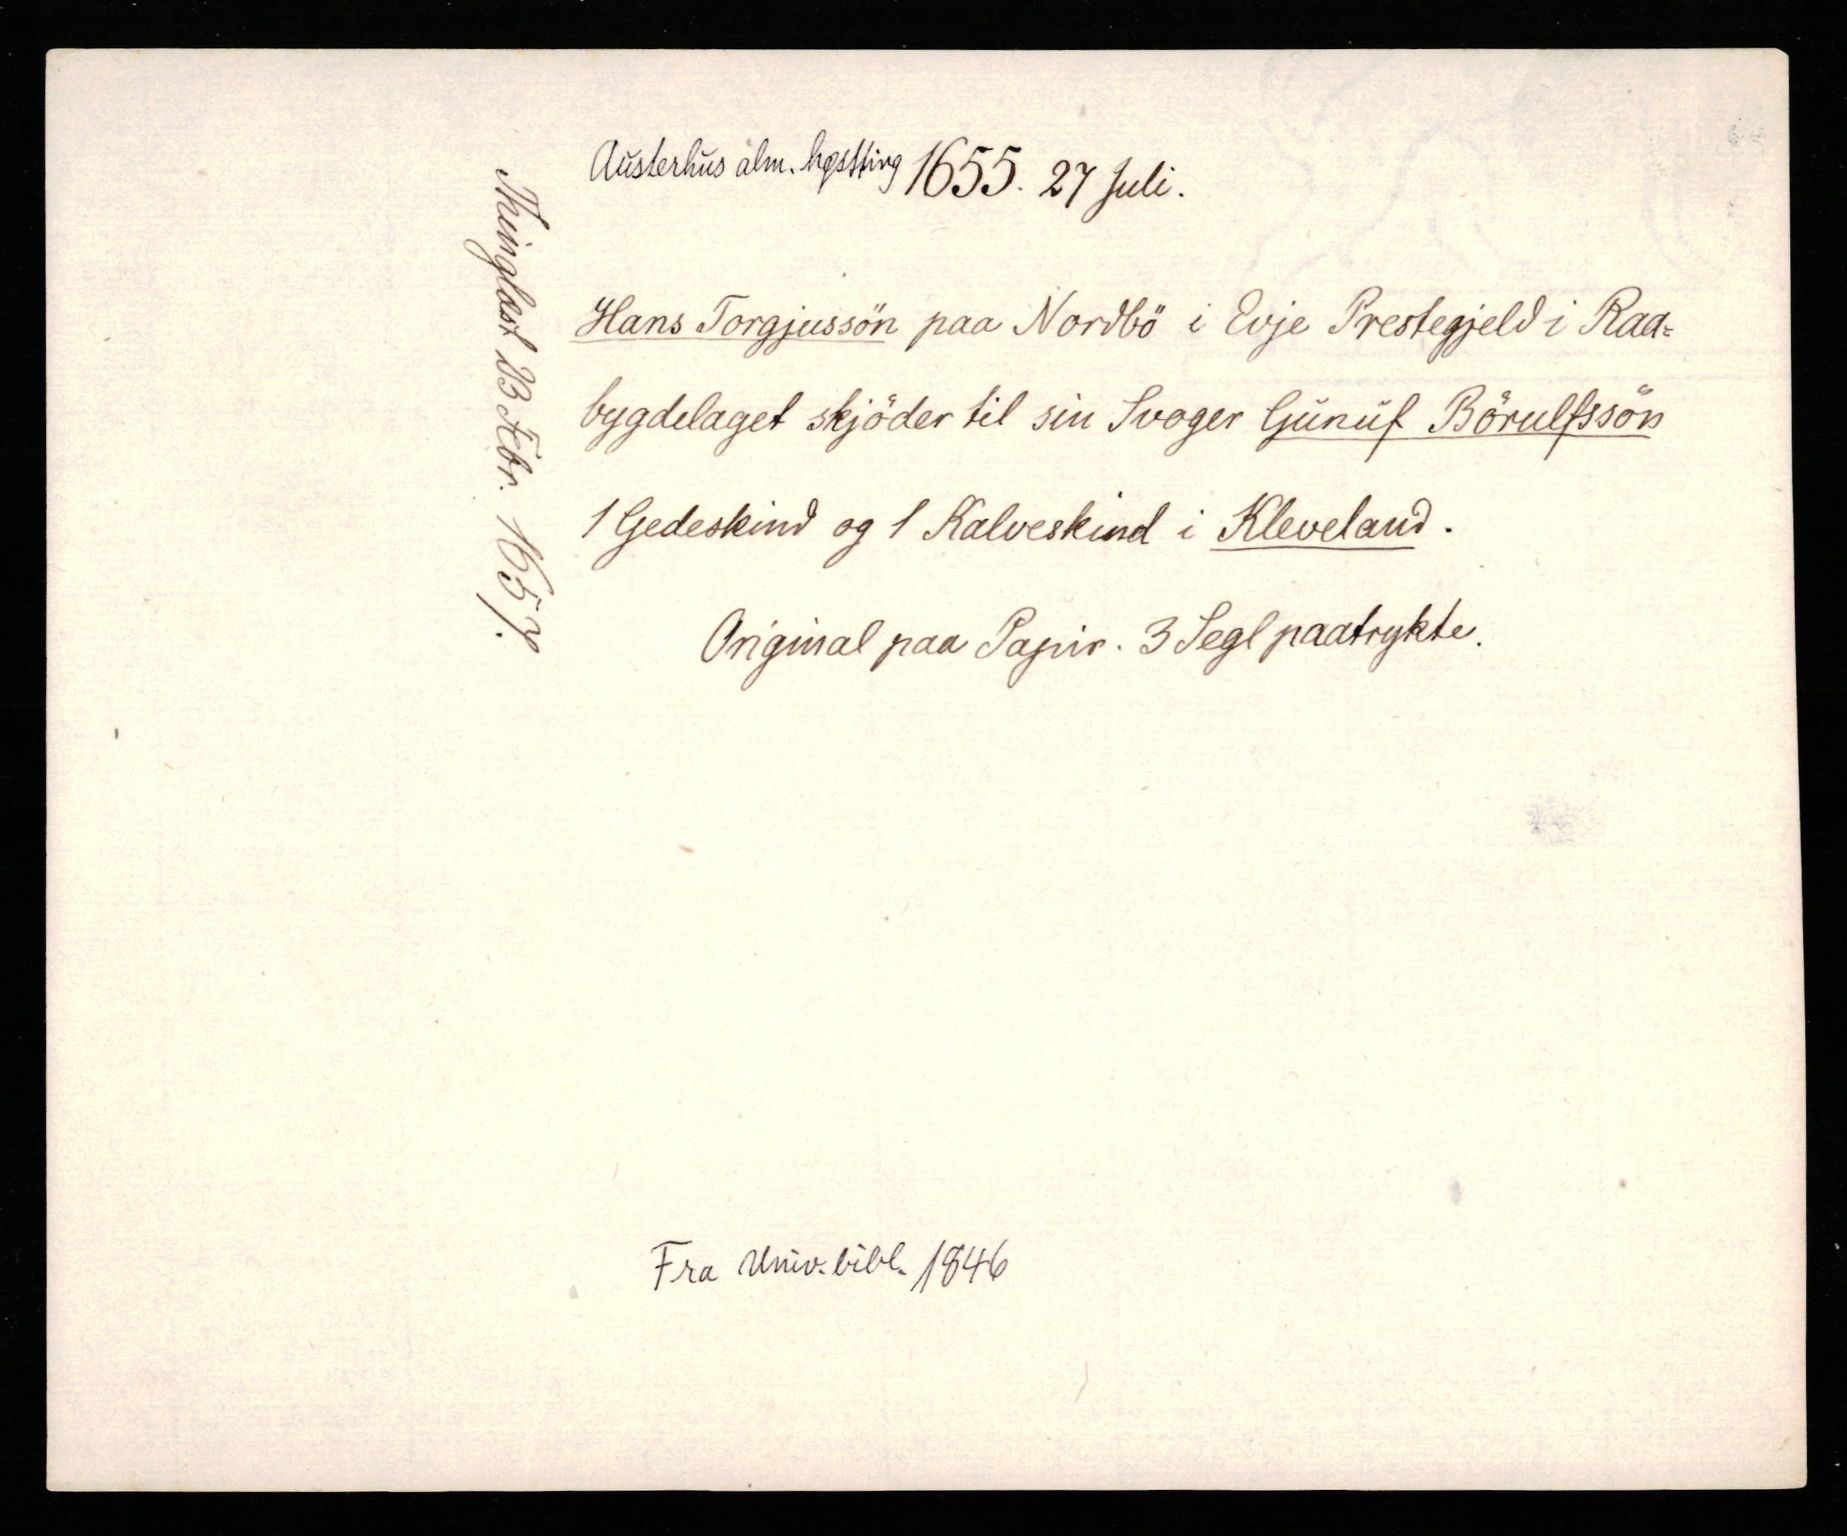 Austerhus alm. høstting 1655. 27 Juli.
Hans Torgjussön paa Nordbö i Evje Prestegjeld i Raa-
bygdelaget skjöder til sin Svoger Gunuf Börulfssön
1 Gedeskind og 1 Kalveskind i Kleveland.
Original paa Papir. 3 Segl paatrykte.
Thinglæst 23 Febr. 1657.
Fra Univ.bibl. 1846